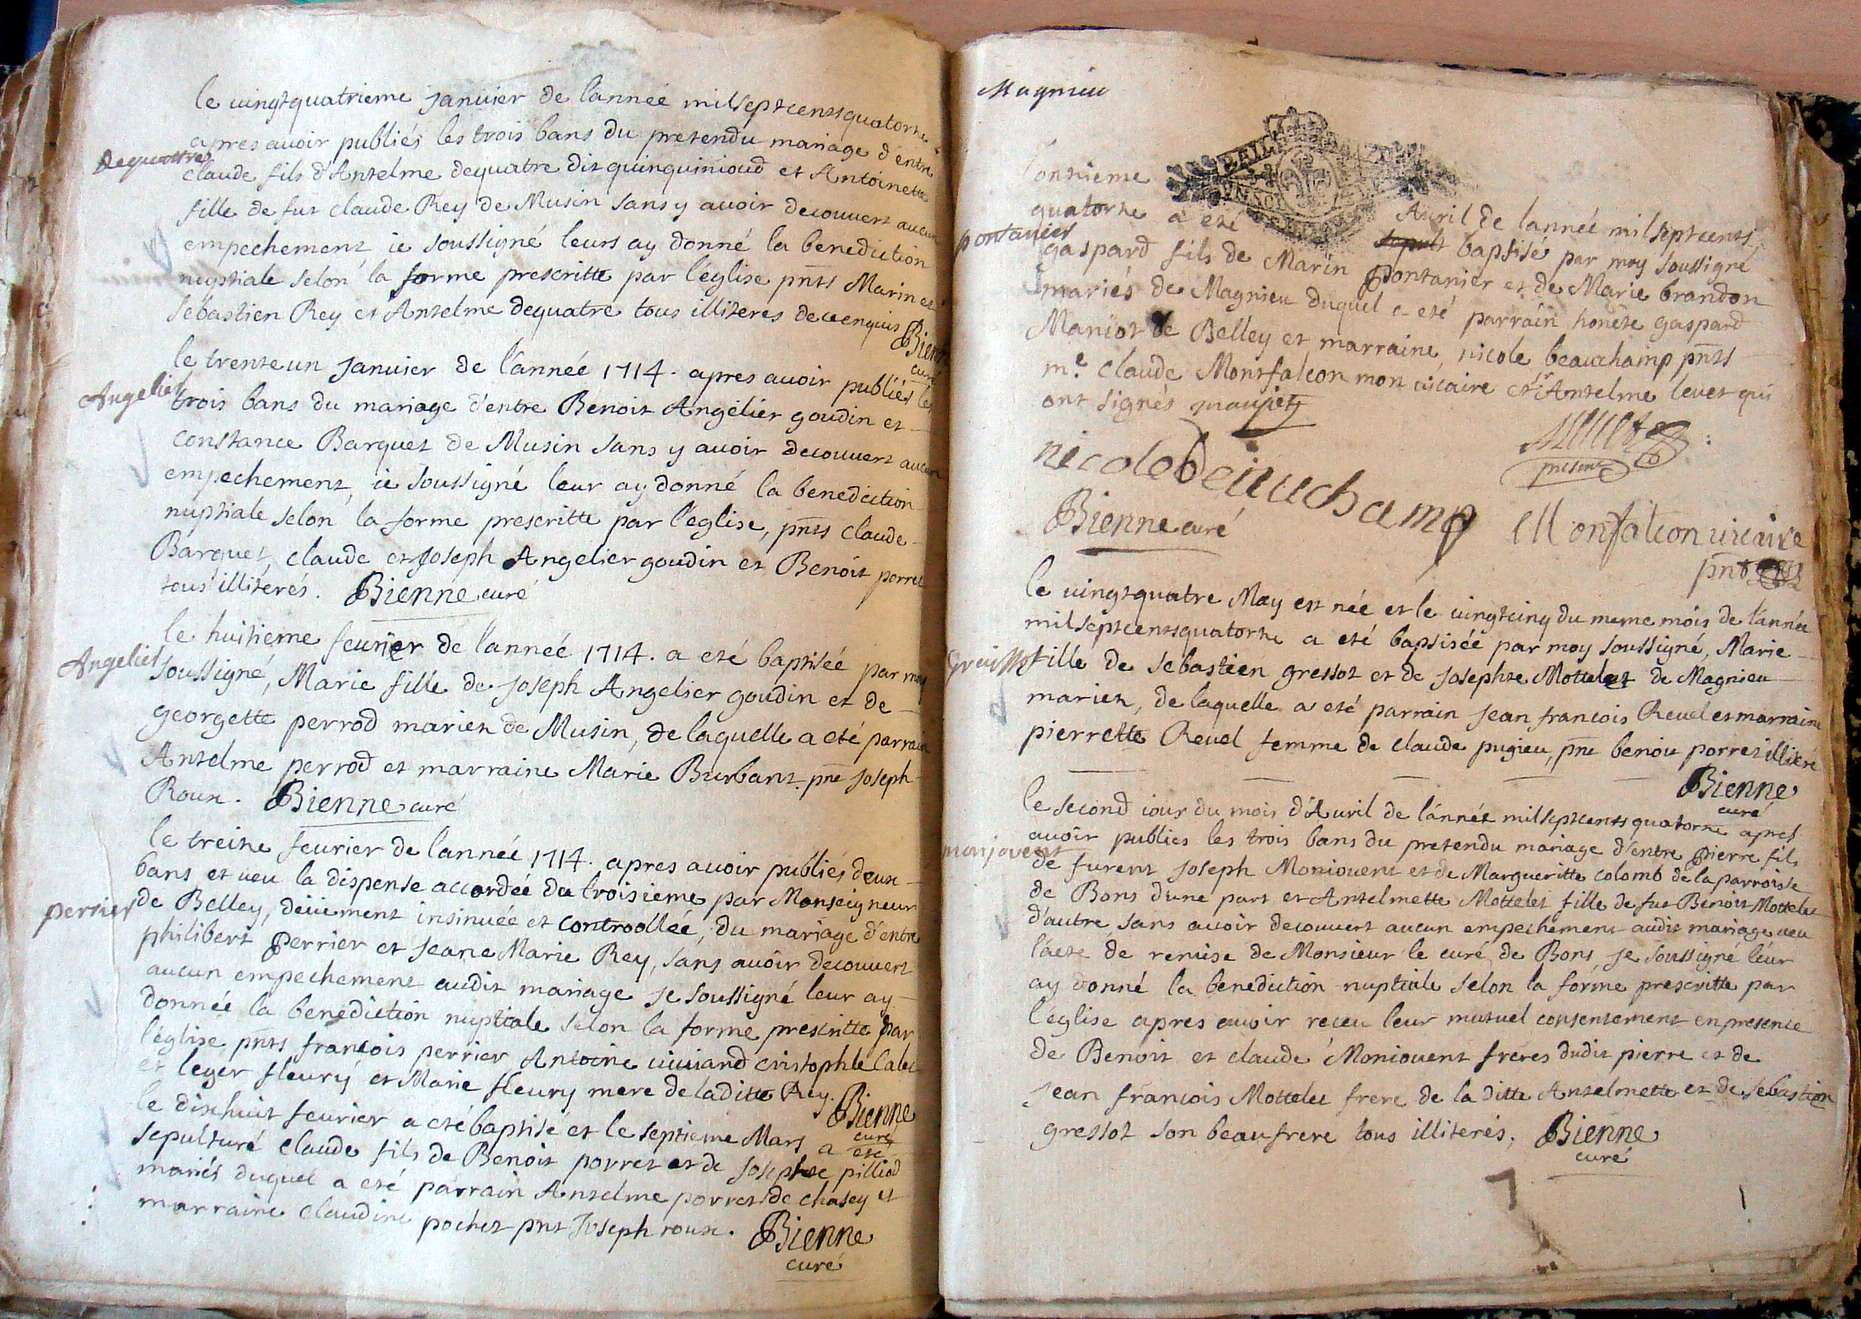 le vingtquatrieme Janvier de l'année milseptcentsquatorze
apres avoir publiés les trois bans du pretendu mariage d'entre
dequatre
claude fils d'Antelme dequatre dit quinquinioud et Antoinette
fille de fut claude Rey de Musin sans y avoir decouvert aucun
empechement ie soussigné leurs ay donné la benediction
nuptiale selon la forme prescritte par l'eglise pnts Marin et
Sebastien Rey et Antelme dequatre tous illiteres de ce enquis
Bienne
curé
le trente un Janvier de l'année 1714. apres avoir publiés les
Angelier
trois bans du mariage d'entre Benoit Angelier goudin et
constance Barquet de Musin sans y avoir decouvert aucun
empechement, ie soussigné leur ay donné la benediction
nuptiale selon la forme prescritte par l'eglise, pnts claude
Barquet, claude et Joseph Angelier goudin et Benoit porret
tous illiterés. Bienne curé
le huitieme fevrier de l'année 1714. a eté baptisée par moy
Angelier
soussigné, Marie fille de Joseph Angelier goudin et de
georgette perrod mariez de Musin, de laquelle a eté parrain
Antelme perrod et marraine Marie Burbant. pnt Joseph
Roux. Bienne curé
le treize fevrier de l'année 1714. apres avoir publiés deux
bans et veu la dispense accordée du troisieme par Monseigneur
perrier
de Belley, deüement insinuée et controollée, du mariage d'entre
philibert perrier et Jeane Marie Rey, sans avoir decouvert
aucun empechement audit mariage je soussigné leur ay
donnée la benediction nuptiale selon la forme prescritte par
l'église pnts francois perrier Antoine viuiand cristophle
et leger fleury et Marie fleury mere de laditte Rey.
Bienne
curé
le dixhuit fevrier a eté baptisé et le septieme Mars a eté
sepulturé claude fils de Benoit porret et de Josephte pilliod
mariés duquel a eté parrain Antelme porret de chasey et
marraine claudine pochet pnt Joseph roux.
Bienne
curé
Magnieu
l'onzieme Avril de lannée milseptcents
quatorze a eté sepult baptisé par moy soussigné
pontanier
gaspard fils de Marin pontanier et de Marie brandon
mariés de Magnieu duquel a eté parrain honete gaspard
Maniot de Belley et marraine nicole beauchamp pnts
mre claude Montfalcon mon vicaire et Sr Antelme levet qui
ont signés
nicole beauchamp
present
Bienne curé
Monfalcon vicaire
pnt
le vingtquatre May est née et le vingtcinq du meme mois de lannée
milseptcentsquatorze a eté baptisée par moy soussigné, Marie
fille de sebastien gressot et de Josephte Mottelet de Magnieu
mariez, de laquelle a eté parrain Jean francois Revel et marraine
pierrette Revel femme de claude pugieu, pnt benoit porret illiteré
Bienne
curé
le second iour du mois d'Avril de l'année milseptcentsquatorze apres
avoir publies les trois bans du pretendu mariage d'entre pierre fils
monjovent
de furent Joseph Moniouent et de Margueritte colomb de la parroisse
de Bons d'une part et Antelmette Mottelet fille de fut Benoit Mottelet
d'autre sans avoir decouvert aucun empechement audit mariage veu
l'acte de remise de Monsieur le curé de Bons, je soussigné leur
ay donné la benediction nuptiale selon la forme prescritte par
l'eglise apres avoir receu leur mutuel consentement en presence
de Benoit et claude Moniouent freres dudit pierre et de
Jean francois Mottelet frere de la ditte Antelmette et de sebastien
gressot son beaufrere tous illiterés. Bienne
curé
7